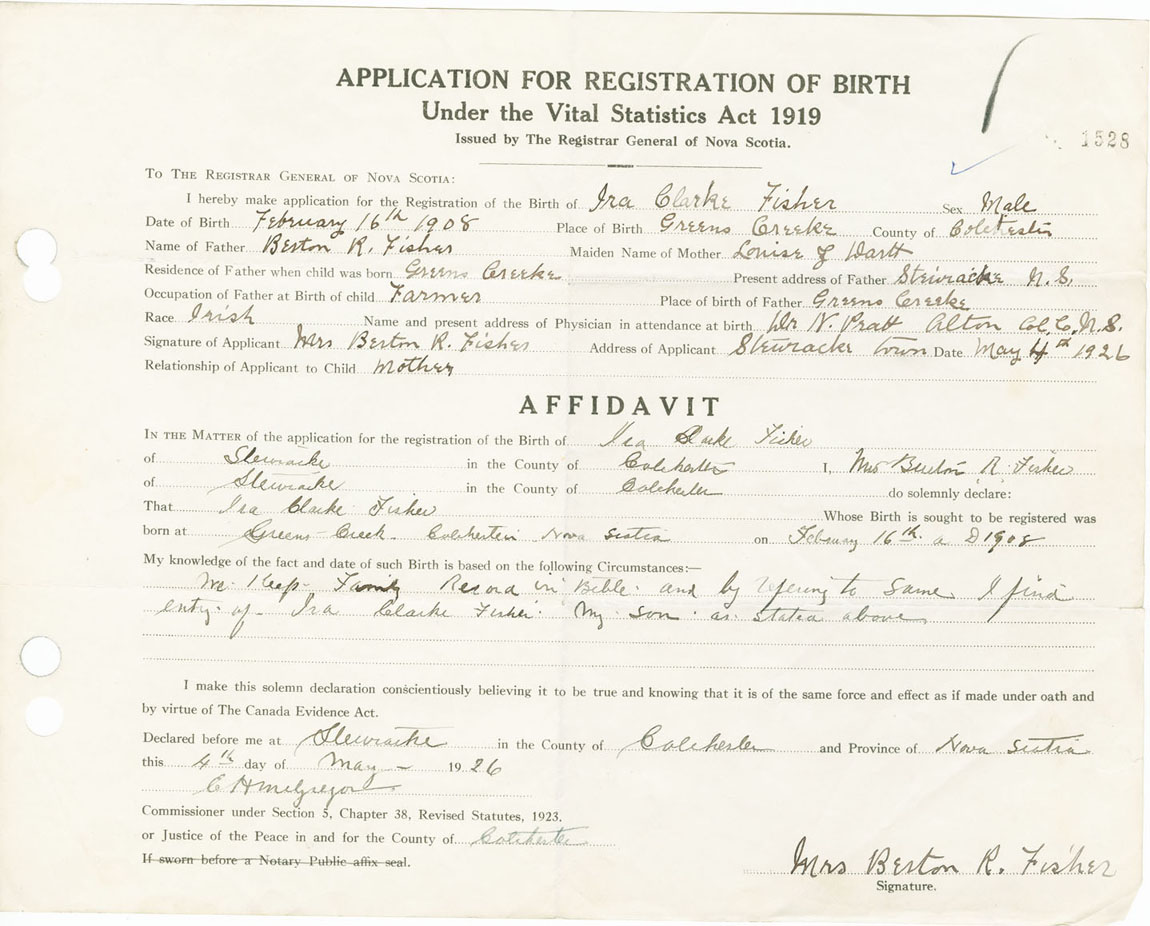 APPLICATION FOR REGISTRATION OF BIRTH
Under the Vital Statistics Act 1919
Issued by The Registrar General of Nova Scotia.
1528
TO THE REGISTRAR GENERAL OF NOVA SCOTIA:
I hereby make application for the Registration of the Birth of Ira Clarke Fisher Sex Male
Date of Birth February 16th 1908 Place of Birth Greens Creeke County of Colchester
Name of Father Berton R. Fisher Maiden Name of Mother Louise J Wartt
Residence of Father when child was born Greens Creeke Present address of Father Stewiacke N.S.
Occupation of Father at Birth of child Farmer Place of birth of Father Greens Creeke
Race Irish Name and present address of Physician in attendance at birth Dr N. Pratt Alton Col. Co. N.S.
Signature of Applicant Mrs Berton R. Fisher Address of Applicant Stewiacke town Date May 4th 1926
Relationship of Applicant to Child Mother
AFFIDAVIT
IN THE MATTER of the application for the registration of the Birth of Ira Clarke Fisher
of Stewiacke in the County of Colchester I, Mrs Burton R. Fisher
of Stewiacke in the County of Colchester do solemnly declare:
That Ira Clarke Fisher Whose Birth is sought to be registered was
born at Greens Creek Colchester Nova Scotia on February 16th a D 1908
My knowledge of the fact and date of such Birth is based on the following Circumstances:—
We Keep Family Record in Bible and by refering to same I find
entry of Ira Clarke Fisher My son as stated above
I make this solemn declaration conscientiously believing it to be true and knowing that it is of the same force and effect as if made under oath and
by virtue of The Canada Evidence Act.
Declared before me at Stewiacke in the County of Colchester and Province of Nova Scotia
this 4th day of May 1926
C H McGregor
Commissioner under Section 5, Chapter 38, Revised Statutes, 1923.
or Justice of the Peace in and for the County of Colchester
If sworn before a Notary Public affix seal.
Mrs Berton R. Fisher
Signature.